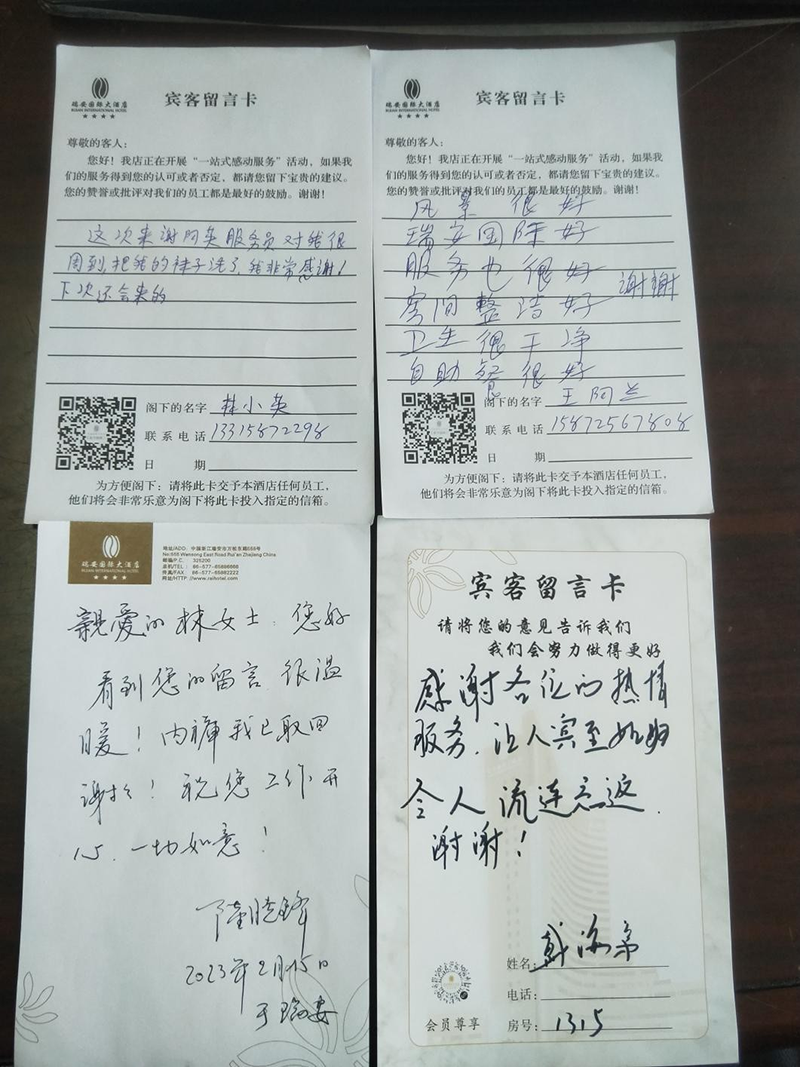 瑞安国际大酒店
RUIAN INTERNATIONAL HOTEL
★★★★
宾客留言卡
尊敬的客人：
您好！我店正在开展“一站式感动服务”活动，如果我
们的服务得到您的认可或者否定，都请您留下宝贵的建议。
您的赞誉或批评对我们的员工都是最好的鼓励。谢谢！
这次来谢阿英服务员对我很
周到，把我的袜子洗了，我非常感谢！
下次还会来的
阁下的名字 林小英
联系电话 13315872298
日 期
为方便阁下：请将此卡交予本酒店任何员工，
他们将会非常乐意为阁下将此卡投入指定的信箱。
瑞安国际大酒店
RUIAN INTERNATIONAL HOTEL
★★★★
宾客留言卡
尊敬的客人：
您好！我店正在开展“一站式感动服务”活动，如果我
们的服务得到您的认可或者否定，都请您留下宝贵的建议。
您的赞誉或批评对我们的员工都是最好的鼓励。谢谢！
风景很好
瑞安国际好
服务也很好
房间整洁好 谢谢
卫生很干净
自助餐很好
阁下的名字 王阿兰
联系电话 15872567808
日 期
为方便阁下：请将此卡交予本酒店任何员工，
他们将会非常乐意为阁下将此卡投入指定的信箱。
瑞安国际大酒店
RUIAN INTERNATIONAL HOTEL
★★★★
地址/ADD: 中国浙江瑞安市万松东路888号
No.888 Wansong East Road Rui'an Zhejiang China
邮编/P.C. 325200
总机/TEL: 86-577-65808888
传真/FAX: 86-577-65802222
网址/HTTP://www.raihotel.com
親愛的林女士：您好
看到您的留言，很温
暖！内裤我已取回
谢谢！祝您工作开
心，一切如意！
晓锋
2023年2月15日
于瑞安
宾客留言卡
请将您的意见告诉我们
我们会努力做得更好
感谢各位的热情
服务，让人宾至如归
令人流连忘返．
谢谢！
姓名：戴海弟
电话：
会员尊享
房号：1315